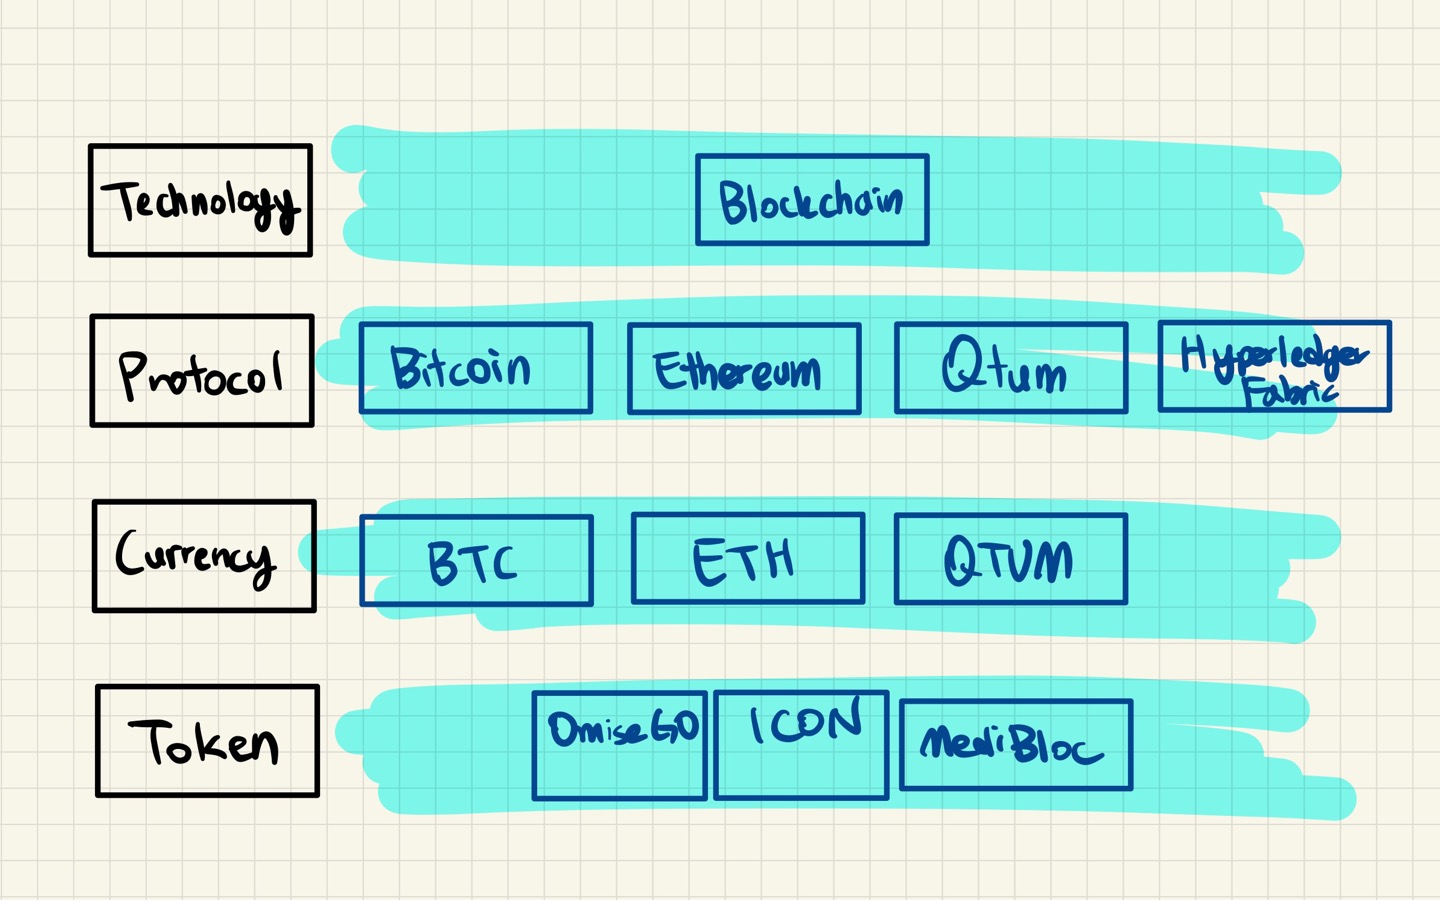 Technology
Blockchain
Protocol
Bitcoin
Ethereum
Qtum
Hyperledger
Fabric
Currency
BTC
ETH
QTUM
Token
OmiseGO
ICON
MediBloc